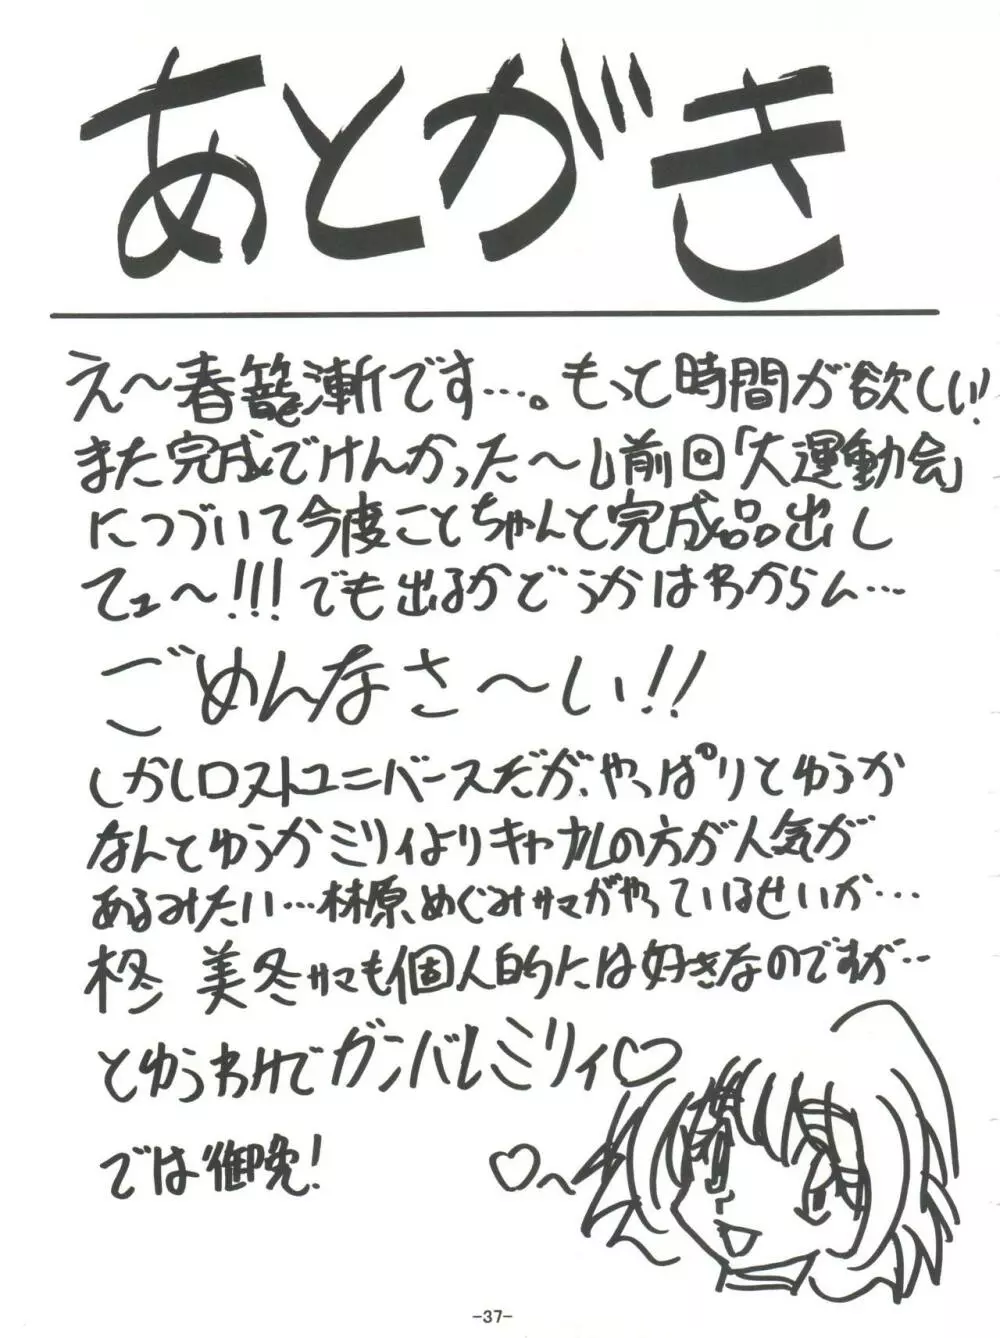 あとがき
え～春籠漸です…。もって時間が欲しい!
また完成でけんかった～し前回「大運動会」
につづいて今度こそちゃんと完成品出し
てェ～!!!でも出るかどうかはわからん…
ごめんなさ～い!!
しかしロストユニバースだが、やっぱりとゆうか
なんとゆうかミリィよりキャナルの方が人気が
あるみたい…林原めぐみサマがやっているせいか…
柊 美冬サマも個人的には好きなのですが…
とゆうわけでガンバレミリィ♡
では御免!
♡～
-37-